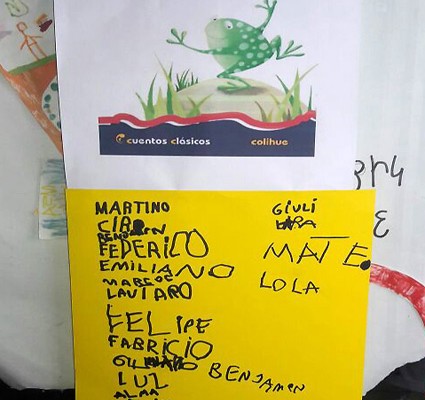 cuentos clásicos
colihue
MARTINO
FEDERICO
EMILIANO
MARCOS
LAUTARO
FELIPE
FABRICIO
LUZ
ALMA
GIULI
MATE
LOLA
BENJAMEN